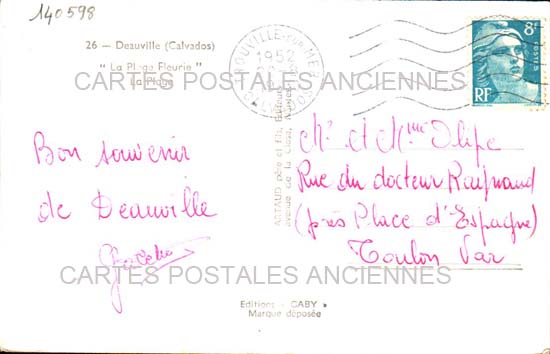 140598
26 — Deauville (Calvados)
" La Plage Fleurie "
La Plage
TROUVILLE-SUR-MER
1952
CALVADOS
8F
POSTES
RF
CARTES POSTALES ANCIENNES
Bon souvenir
de Deauville
ARTAUD père et fils, Éditeurs
avenue de la Close, Nantes
Mr et Mme
Rue du docteur Raynaud
(près Place d'Espagne)
Toulon Var
CARTES POSTALES ANCIENNES
Editions « GABY »
Marque déposée